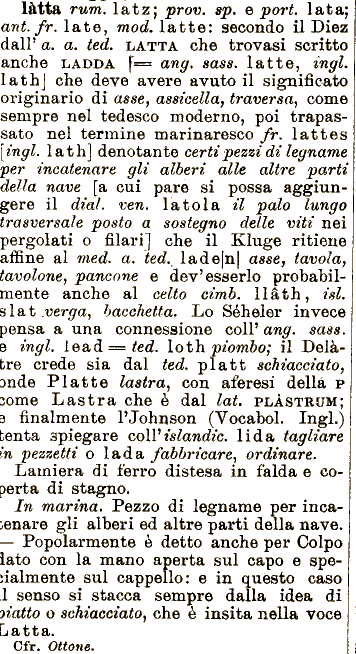 làtta rum. latz; prov. sp. e port. lata;
ant. fr. late, mod. latte: secondo il Diez
dall' a. a. ted. LATTA che trovasi scritto
anche LADDA [= ang. sass. latte, ingl.
lath] che deve avere avuto il significato
originario di asse, assicella, traversa, come
sempre nel tedesco moderno, poi trapas-
sato nel termine marinaresco fr. lattes
[ingl. lath] denotante certi pezzi di legname
per incatenare gli alberi alle altre parti
della nave [a cui pare si possa aggiun-
gere il dial. ven. latola il palo lungo
trasversale posto a sostegno delle viti nei
pergolati o filari] che il Kluge ritiene
affine al med. a. ted. lade[n] asse, tavola,
tavolone, pancone e dev'esserlo probabil-
mente anche al celto cimb. llâth, isl.
slat verga, bacchetta. Lo Séheler invece
pensa a una connessione coll' ang. sass.
e ingl. lead = ted. loth piombo; il Delà-
tre crede sia dal ted. platt schiacciato,
onde Platte lastra, con aferesi della P
come Lastra che è dal lat. PLÀSTRUM;
e finalmente l'Johnson (Vocabol. Ingl.)
tenta spiegare coll'islandic. lida tagliare
in pezzetti o lada fabbricare, ordinare.
Lamiera di ferro distesa in falda e co-
perta di stagno.
In marina. Pezzo di legname per inca-
tenare gli alberi ed altre parti della nave.
— Popolarmente è detto anche per Colpo
dato con la mano aperta sul capo e spe-
cialmente sul cappello: e in questo caso
il senso si stacca sempre dalla idea di
piatto o schiacciato, che è insita nella voce
Latta.
Cfr. Ottone.